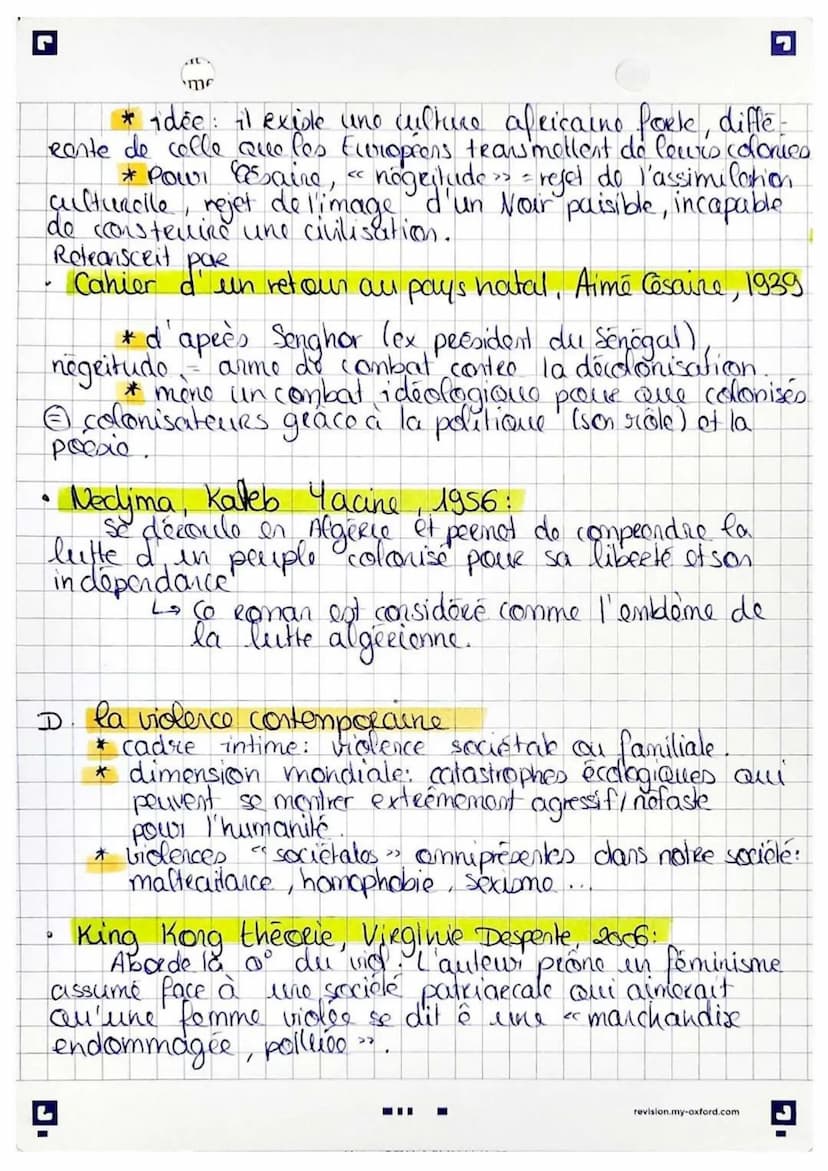 * idée : il existe une culture africaine forte, diffé-
rente de celle que les Européens transmettent de leurs colonies
* Pour Césaire, « négritude » = rejet de l'assimilation
culturelle, rejet de l'image d'un Noir paisible, incapable
de construire une civilisation.
Retranscrit par
• Cahier d'un retour au pays natal, Aimé Césaire, 1939
* d'après Senghor (ex président du Sénégal),
négritude = arme de combat contre la décolonisation.
* mène un combat idéologique pour que colonisés
= colonisateurs grâce à la politique (son rôle) et la
poésie.
• Nedjma, Kateb Yacine, 1956 :
Se déroule en Algérie et permet de comprendre la
lutte d'un peuple colonisé pour sa liberté et son
indépendance
↳ Ce roman est considéré comme l'emblème de
la lutte algérienne.
D. la violence contemporaine
* cadre intime : violence sociétale ou familiale.
* dimension mondiale : catastrophes écologiques qui
peuvent se montrer extrêmement agressif/néfaste
pour l'humanité.
* violences « sociétales » omniprésentes dans notre société :
maltraitance, homophobie, sexisme ...
• King Kong théorie, Virginie Despente, 2006 :
Aborde la q° du viol. L'auteur prône un féminisme
assumé face à une société patriarcale qui aimerait
qu'une femme violée se dit ê une « marchandise
endommagée, polluée ».
revision.my-oxford.com